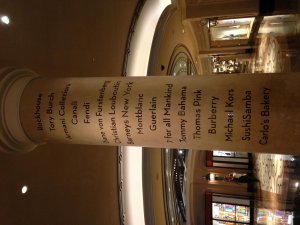 Brickhouse
Tory Burch
Armani Collezioni
Canali
Fendi
Diane von Furstenberg
Christian Louboutin
Barneys New York
Montblanc
Guerlain
7 for all Mankind
Tommy Bahama
Thomas Pink
Burberry
Michael Kors
SushiSamba
Carlo's Bakery